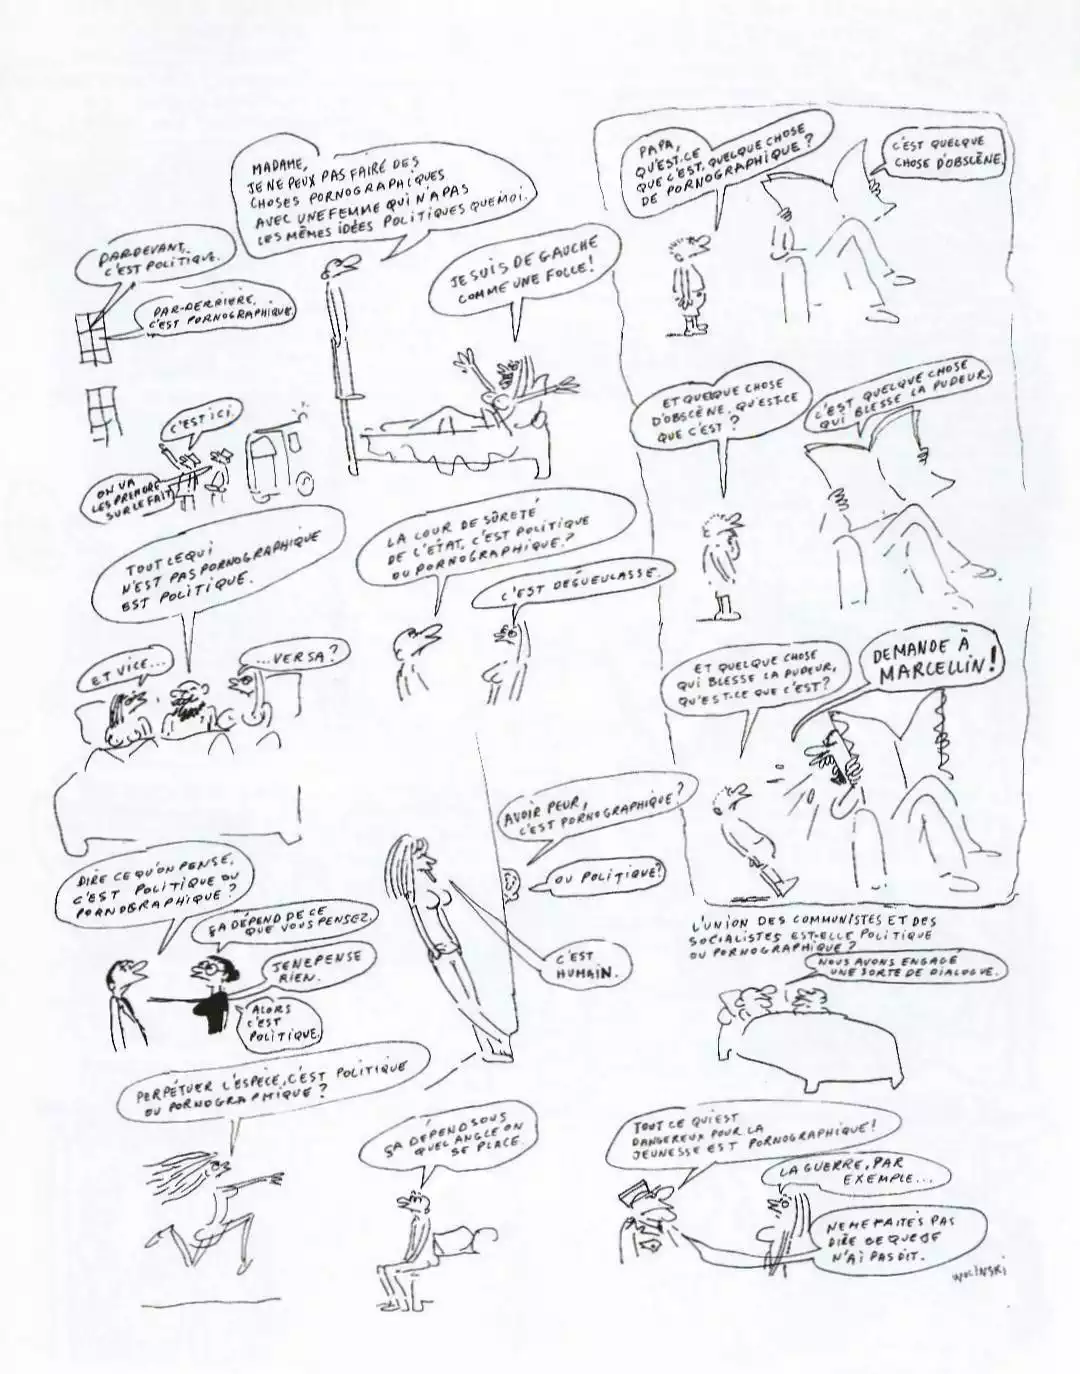 MADAME,
JE NE PEUX PAS FAIRE DES
CHOSES PORNOGRAPHIQUES
AVEC UNE FEMME QUI N'A PAS
LES MÊMES IDÉES POLITIQUES QUE MOI.
JE SUIS DE GAUCHE
COMME UNE FOLLE!
PAR DEVANT,
C'EST POLITIQUE.
PAR-DERRIÈRE,
C'EST PORNOGRAPHIQUE.
C'EST ICI
ON VA
LES PRENDRE
SUR LE FAIT
PAPA,
QU'EST-CE
QUE C'EST, QUELQUE CHOSE
DE PORNOGRAPHIQUE?
C'EST QUELQUE
CHOSE D'OBSCÈNE.
ET QUELQUE CHOSE
D'OBSCÈNE, QU'EST-CE
QUE C'EST?
C'EST QUELQUE CHOSE
QUI BLESSE LA PUDEUR.
ET QUELQUE CHOSE
QUI BLESSE LA PUDEUR,
QU'EST-CE QUE C'EST?
DEMANDE À
MARCELLIN!
TOUT CE QUI
N'EST PAS PORNOGRAPHIQUE
EST POLITIQUE.
ET VICE...
...VERSA?
LA COUR DE SÛRETÉ
DE L'ÉTAT, C'EST POLITIQUE
OU PORNOGRAPHIQUE?
C'EST DÉGUEULASSE.
DIRE CE QU'ON PENSE,
C'EST POLITIQUE OU
PORNOGRAPHIQUE?
ÇA DÉPEND DE CE
QUE VOUS PENSEZ.
JE NE PENSE
RIEN.
ALORS
C'EST
POLITIQUE.
AVOIR PEUR,
C'EST PORNOGRAPHIQUE?
OU POLITIQUE!
C'EST
HUMAIN.
L'UNION DES COMMUNISTES ET DES
SOCIALISTES EST-ELLE POLITIQUE
OU PORNOGRAPHIQUE?
NOUS AVONS ENGAGÉ
UNE SORTE DE DIALOGUE.
PERPÉTUER L'ESPÈCE, C'EST POLITIQUE
OU PORNOGRAPHIQUE?
ÇA DÉPEND SOUS
QUEL ANGLE ON
SE PLACE.
TOUT CE QUI EST
DANGEREUX POUR LA
JEUNESSE EST PORNOGRAPHIQUE!
LA GUERRE, PAR
EXEMPLE...
NE ME FAITES PAS
DIRE CE QUE JE
N'AI PAS DIT.
WOLINSKI